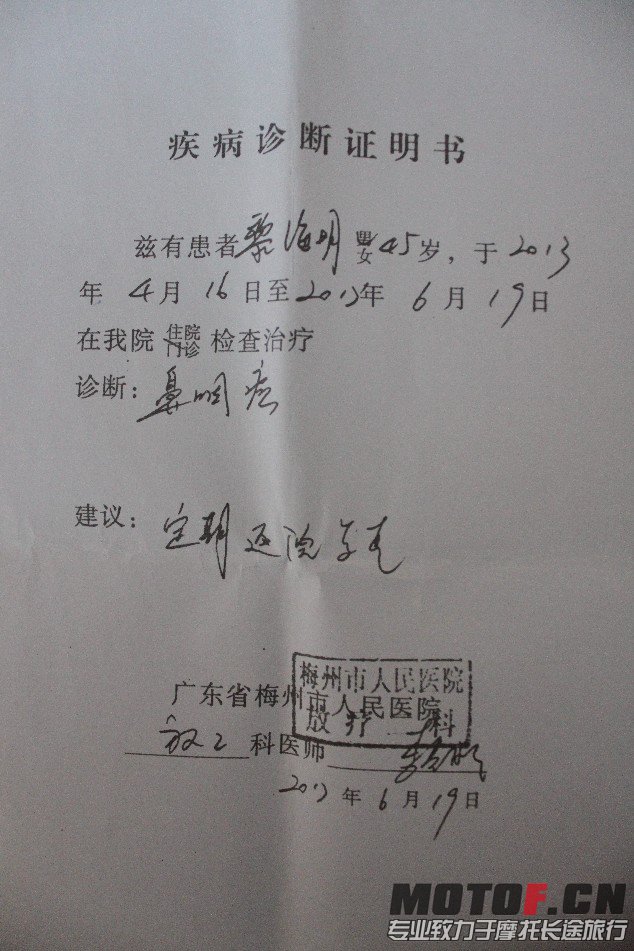 疾病诊断证明书
兹有患者黎海明 男女 45岁，于2013
年 4月 16日至2013年 6月 19日
在我院 住院门诊 检查治疗
诊断：鼻咽癌
建议：定期返院复查
梅州市人民医院
广东省梅州市人民医院
放疗二科
放二 科医师
2013年 6月 19日
MOTOF.CN
专业致力于摩托长途旅行